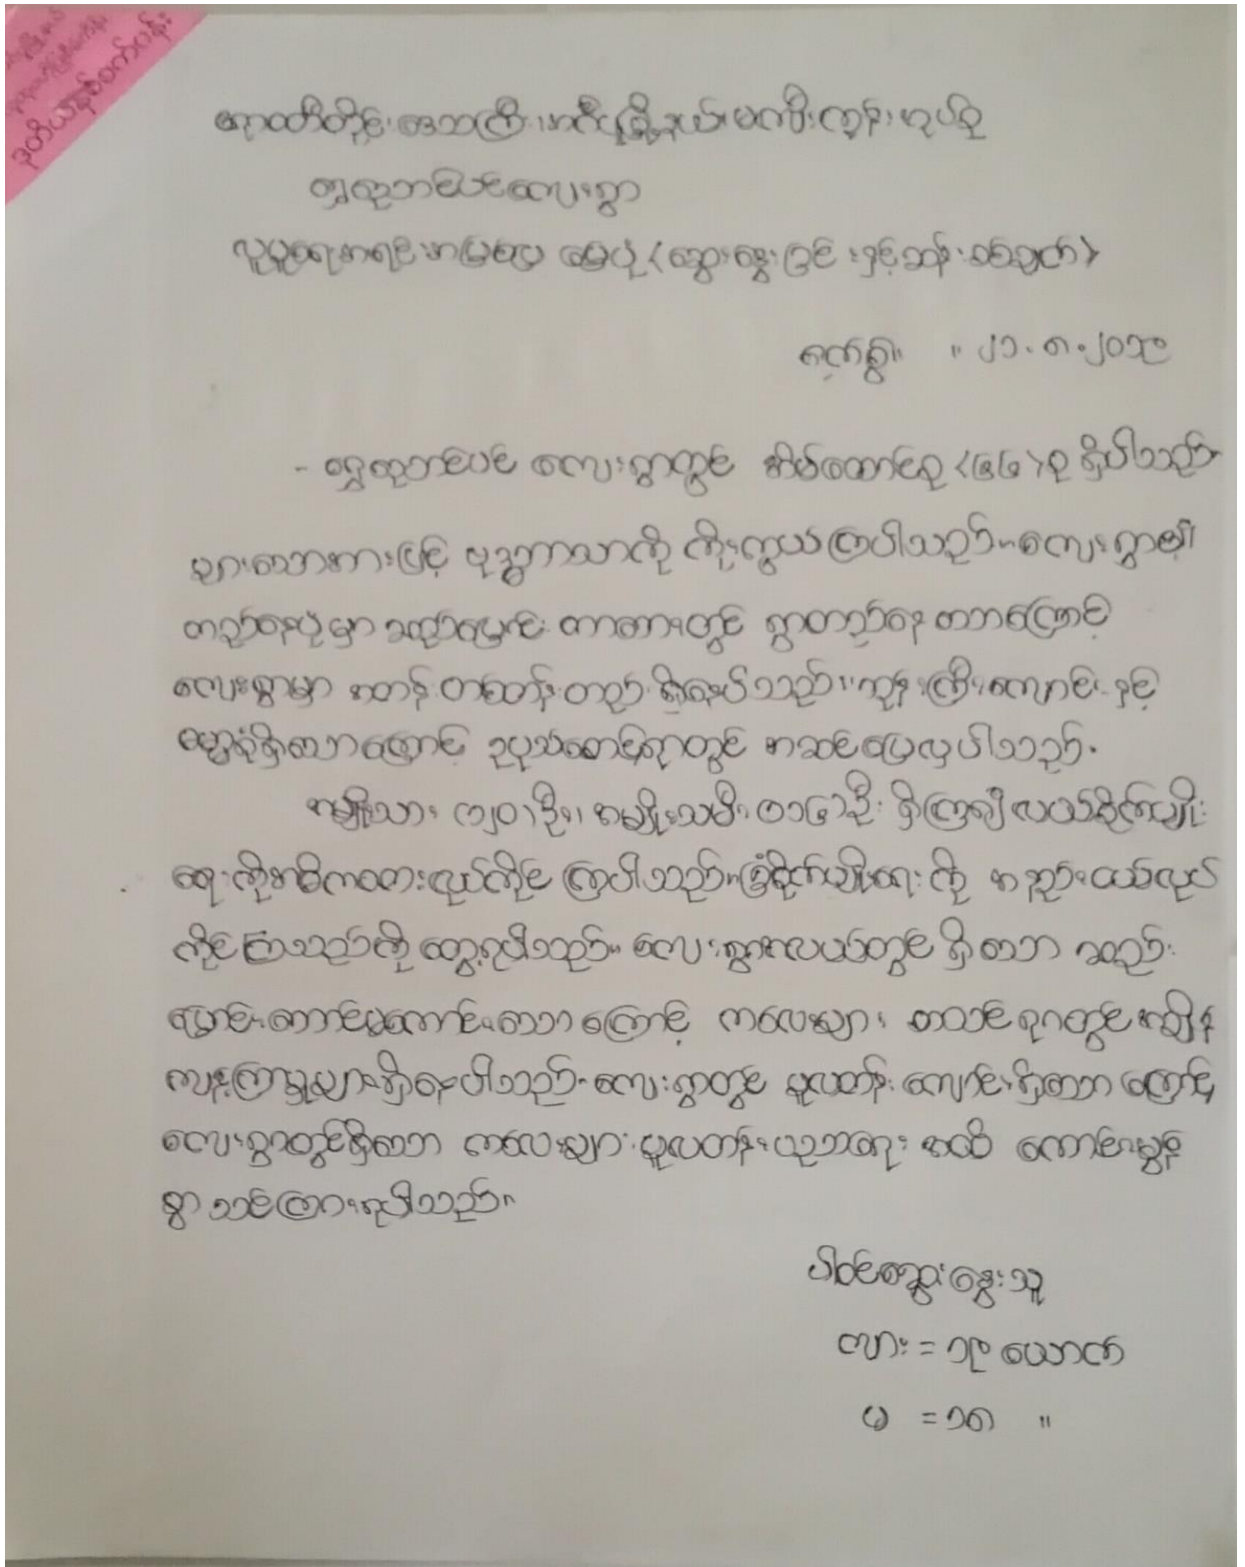 ဒုတိယနှစ်ပတ်ပန်း
ဧရာဝတီတိုင်းဒေသကြီး၊ အင်္ဂပူမြို့နယ်၊ မကျီးကုန်းအုပ်စု
ရွှေထုဘင်ပင်ကျေးရွာ
လူမှုရေးအရင်းအမြစ်ပြ မြေပုံ (ဆွေးနွေးခြင်းနှင့်ဆန်းစစ်ချက်)
ရက်စွဲ။ ။ ၂၁.၈.၂၀၁၉
- ရွှေထုဘင်ပင် ကျေးရွာတွင် အိမ်ထောင်စု (၆၄) စု ရှိပါသည်
များသောအားဖြင့် ဗုဒ္ဓဘာသာကို ကိုးကွယ်ကြပါသည်။ ကျေးရွာ၏
တည်နေပုံမှာ ဆည်မြောင်း တာဘားတွင် ရွာတည်နေ တာကြောင့်
ကျေးရွာမှာ အတန် တထောင့်တည်း ရှိနေပါသည်။ ဘုန်းကြီးကျောင်း နှင့်
ဓမ္မာရုံရှိသောကြောင့် ဥပုသ်စောင့်ရာတွင် အဆင်ပြေလှပါသည်။
အမျိုးသား (၁၂၀) ဦး၊ အမျိုးသမီး (၁၁၆) ဦး ရှိကြ၍ လယ်စိုက်ပျိုး
ရေးကိုအဓိကထားလုပ်ကိုင် ကြပါသည်။ ခြံစိုက်ပျိုးရေးကို အနည်းငယ်လုပ်
ကိုင်ကြသည်ကို တွေ့ရပါသည်။ ကျေးရွာအလယ်တွင် ရှိသော ဆည်
မြောင်းဘောင်မကောင်းသော ကြောင့် ကလေးများ စာသင်ရာတွင် အချိန်
ကျန်ကြမှုများရှိနေပါသည်။ ကျေးရွာတွင် မူလတန်း ကျောင်းရှိသော ကြောင့်
ကျေးရွာတွင်ရှိသော ကလေးများ မူလတန်းပညာရေး အထိ ကောင်းမွန်
စွာ သင်ကြားရပါသည်။
ပါဝင်ဆွေးနွေးသူ
ကျား = ၁၉ ယောက်
မ = ၁၈ "